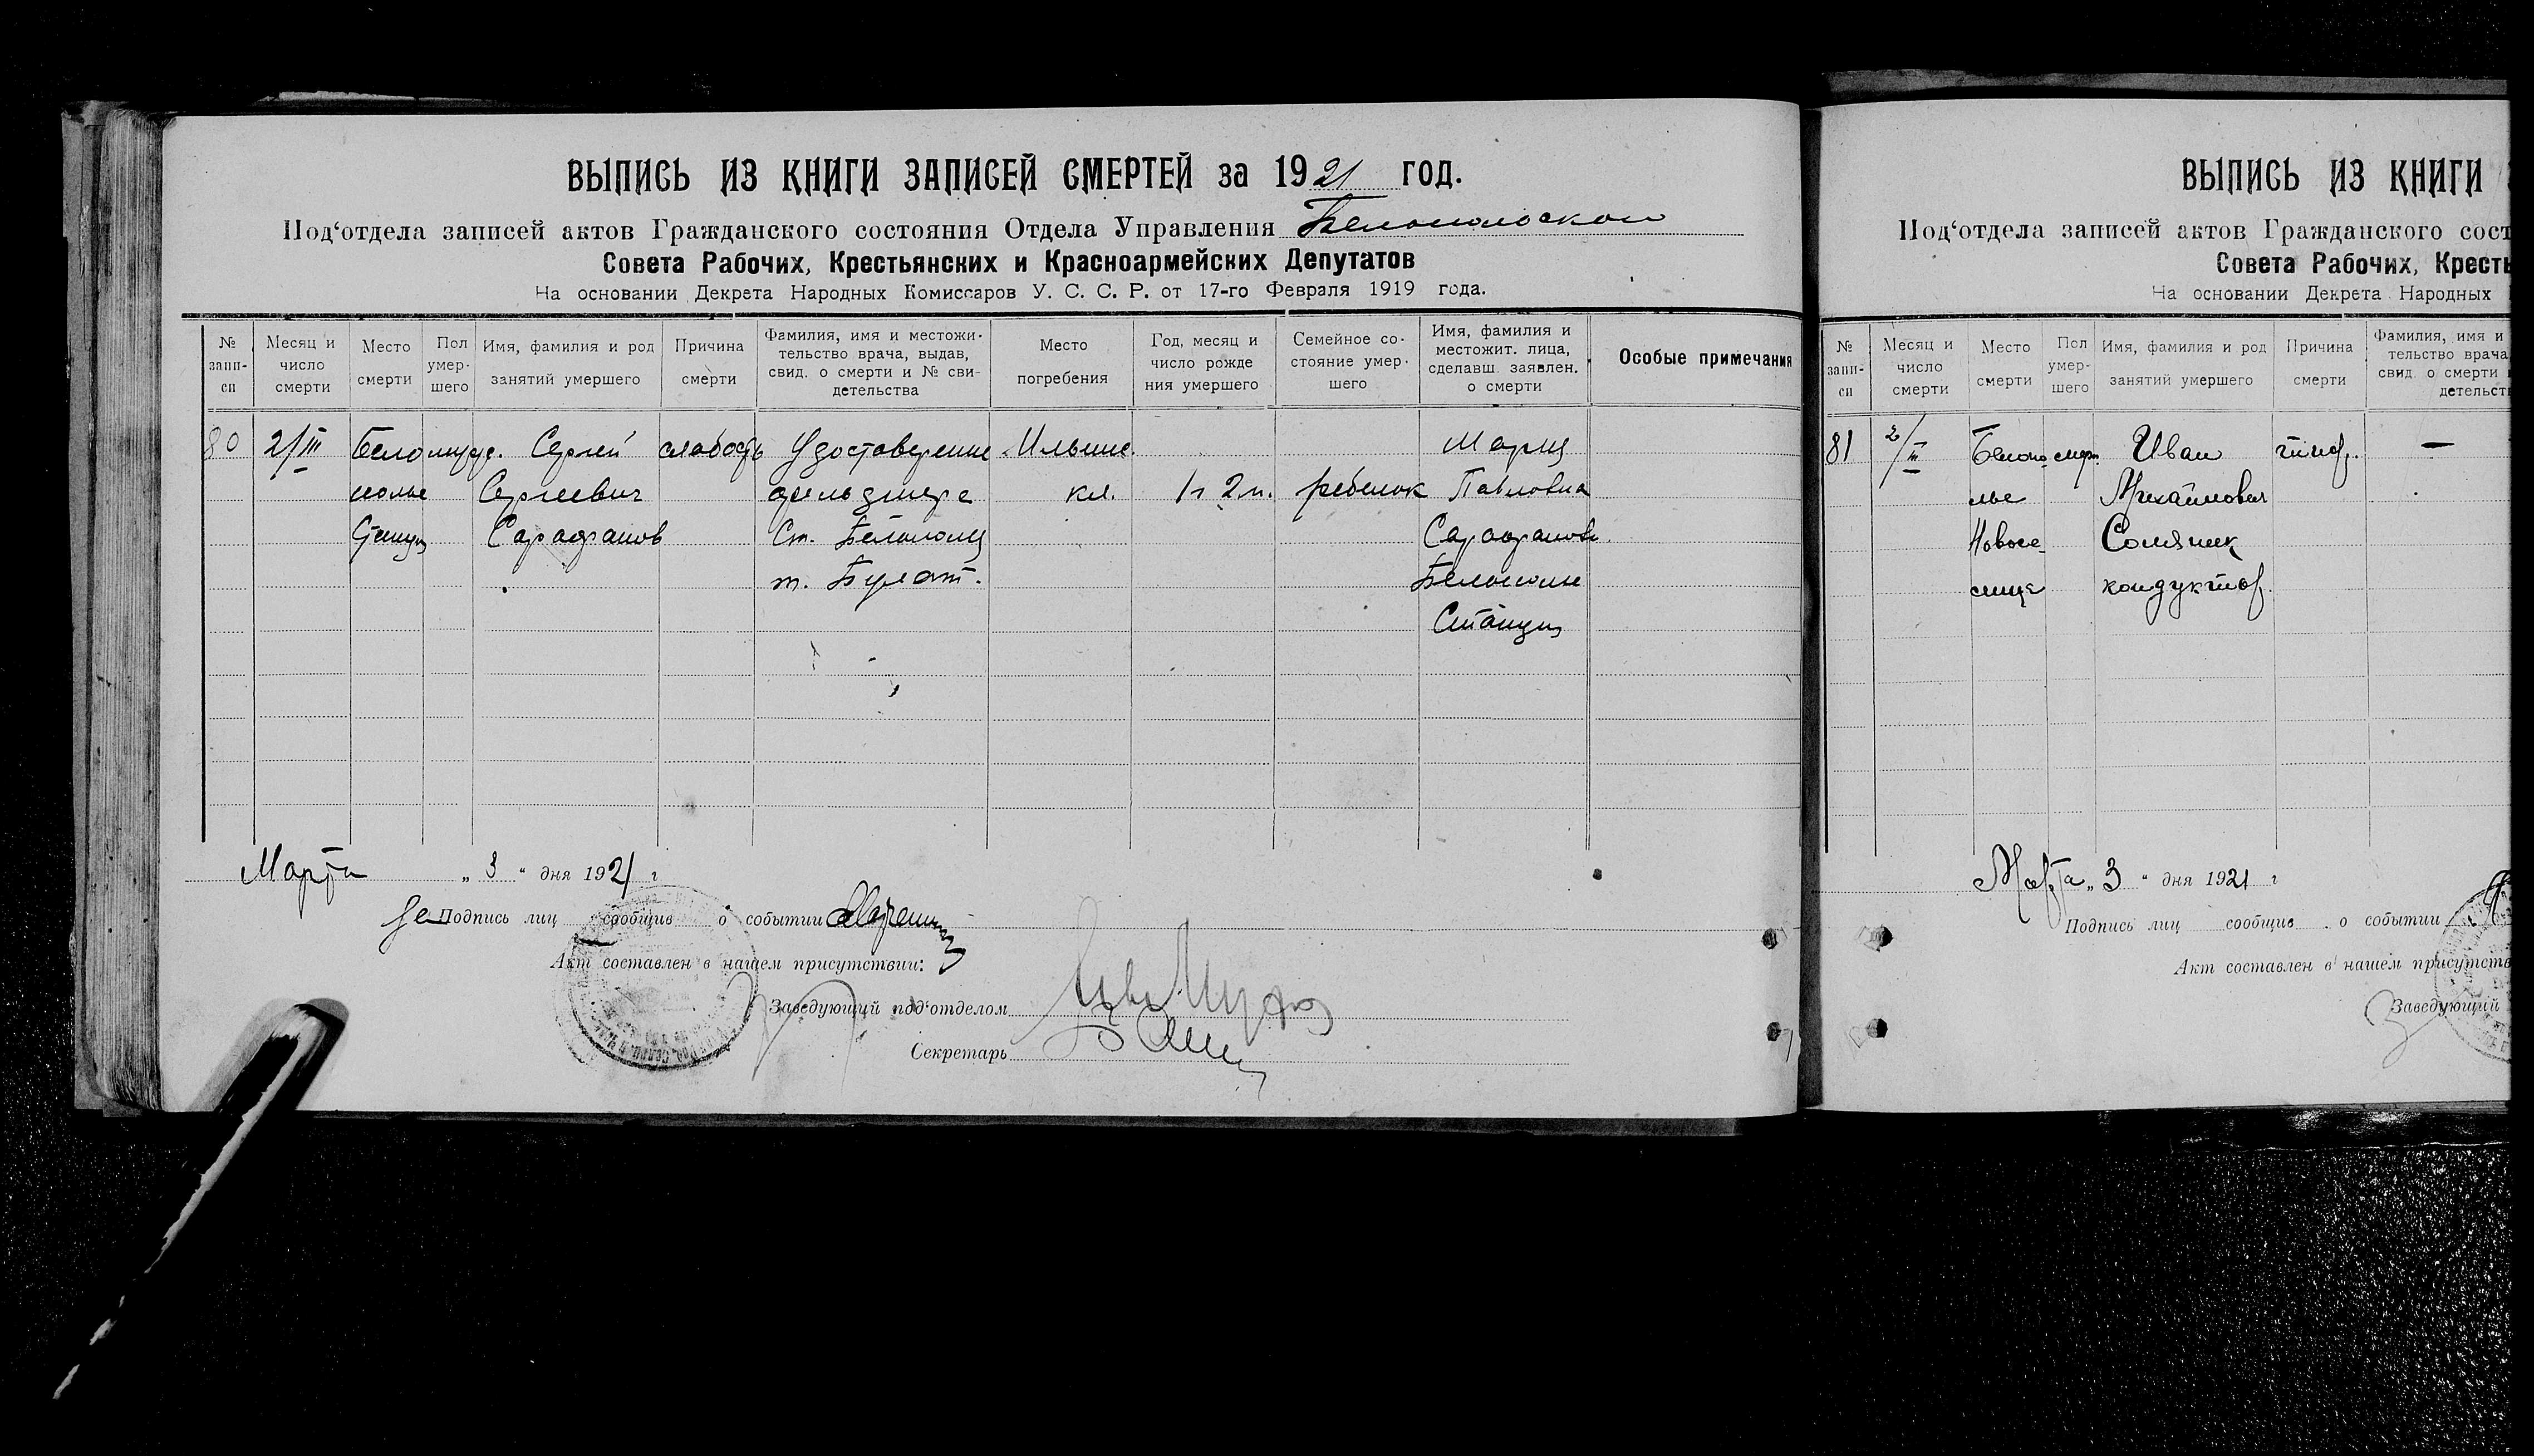 ВЫПИСЬ ИЗ КНИГИ ЗАПИСЕЙ СМЕРТЕЙ за 1921 год.
Под‘отдела записей актов Гражданского состояния Отдела Управления
Совета Рабочих, Крестьянских и Красноармейских Депутатов
На основании Декрета Народных Комиссаров У. С. С. Р. от 17-го Февраля 1919 года.
№ запи-си
Месяц и число смерти
Место смерти
Пол умер-шего
Имя, фамилия и род занятий умершего
Причина смерти
Фамилия, имя и местожи-
тельство врача, выдав,
свид. о смерти и № сви-
детельства
Место погребения
Год, месяц и
число рожде
ния умершего
Семейное со-
стояние умер-
шего
Имя, фамилия и
местожит. лица,
сделавш. заявлен.
о смерти
Особые примечания
80
2/III
Бело
полье
Станция
Сергей
Сергеевич
Сарафанов
слабость
Удостоверение
фельдшера
Ст. Белополья
т. Булат.
Ильинс.
кл.
1 г 2 м.
ребенок
Мария
Павловна
Сарафанова
Белополье
Станция
Марта „ 3 “ дня 1921 г
Подпись лиц сообщив о событии
Акт составлен в нашем присутствии:
Заведующий под‘отделом
Секретарь
ВЫПИСЬ ИЗ КНИГИ
Под‘отдела записей актов Гражданского сост
Совета Рабочих, Кресть
На основании Декрета Народных
№ запи-си
Месяц и число смерти
Место смерти
Пол умер-шего
Имя, фамилия и род занятий умершего
Причина смерти
Фамилия, имя и
тельство врача
свид. о смерти
детельст
81
2/III
Белопо
лье
Новосе
лище
Иван
Михайлович
Соляник
кондуктор.
тиф.
—
Марта „ 3 “ дня 1921 г
Подпись лиц сообщив о событии
Акт составлен в нашем присутств
Заведующий